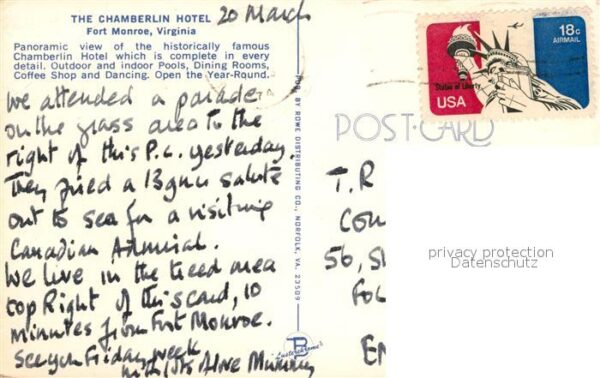 THE CHAMBERLIN HOTEL
20 March
Fort Monroe, Virginia
Panoramic view of the historically famous
Chamberlin Hotel which is complete in every
detail. Outdoor and indoor Pools, Dining Rooms,
Coffee Shop and Dancing. Open the Year-Round.
We attended a parade
on the grass area to the
right of this P.C. yesterday.
They fired a 13 gun salute
out to sea for a visiting
Canadian Admiral.
We live in the treed area
top Right of this card, 10
minutes from Fort Monroe.
See you Friday week
with lots of love
PUB. BY ROWE DISTRIBUTING CO., NORFOLK, VA. 23509
18c
AIRMAIL
Statue of Liberty
USA
POST CARD
T.R
COU
56, S
FOL
EN
privacy protection
Datenschutz